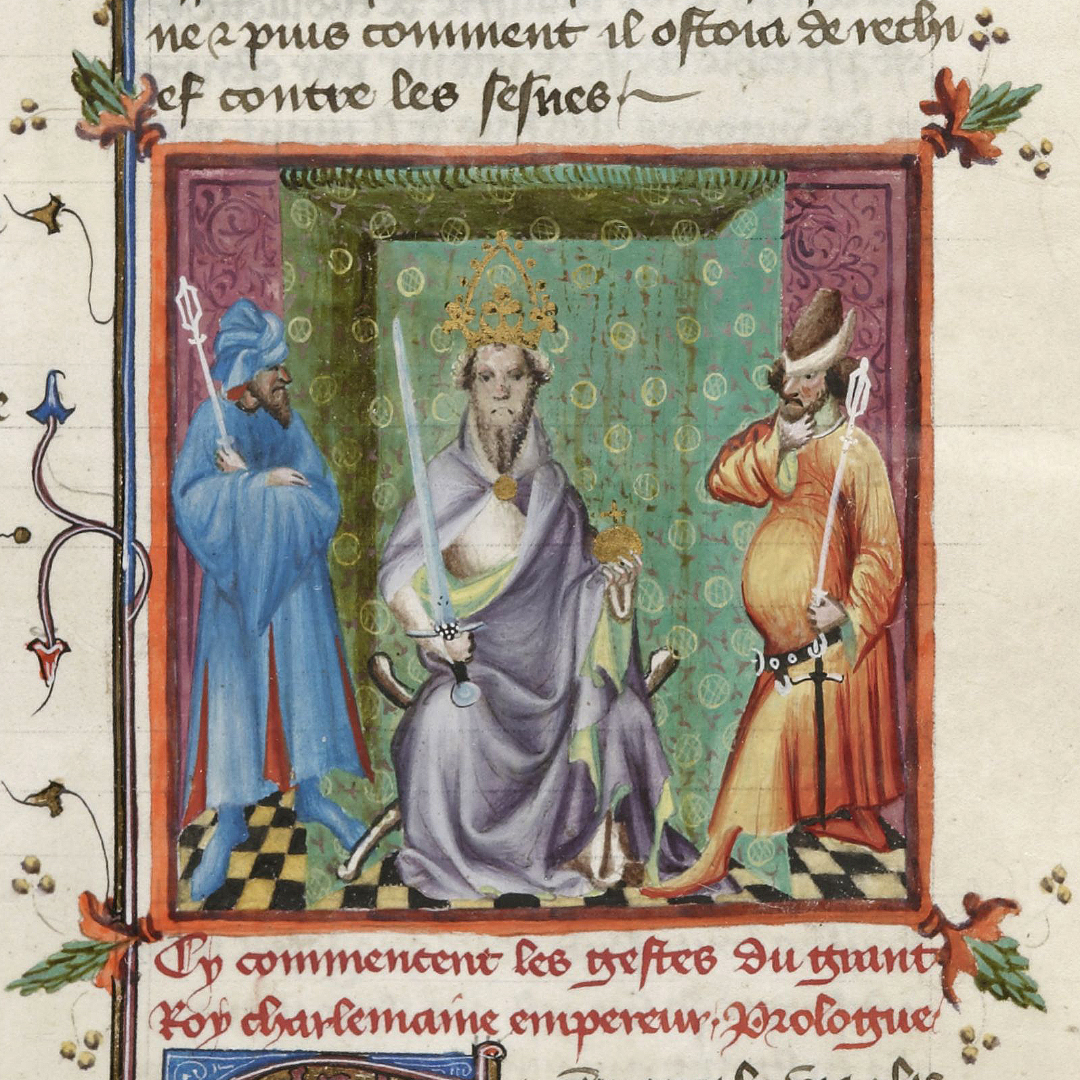 ne ⁊ puis comment il ostoia de rechi
ef contre les sesnes
Cy commencent les gestes du grant
Roy charlemaine empereur. Prologue